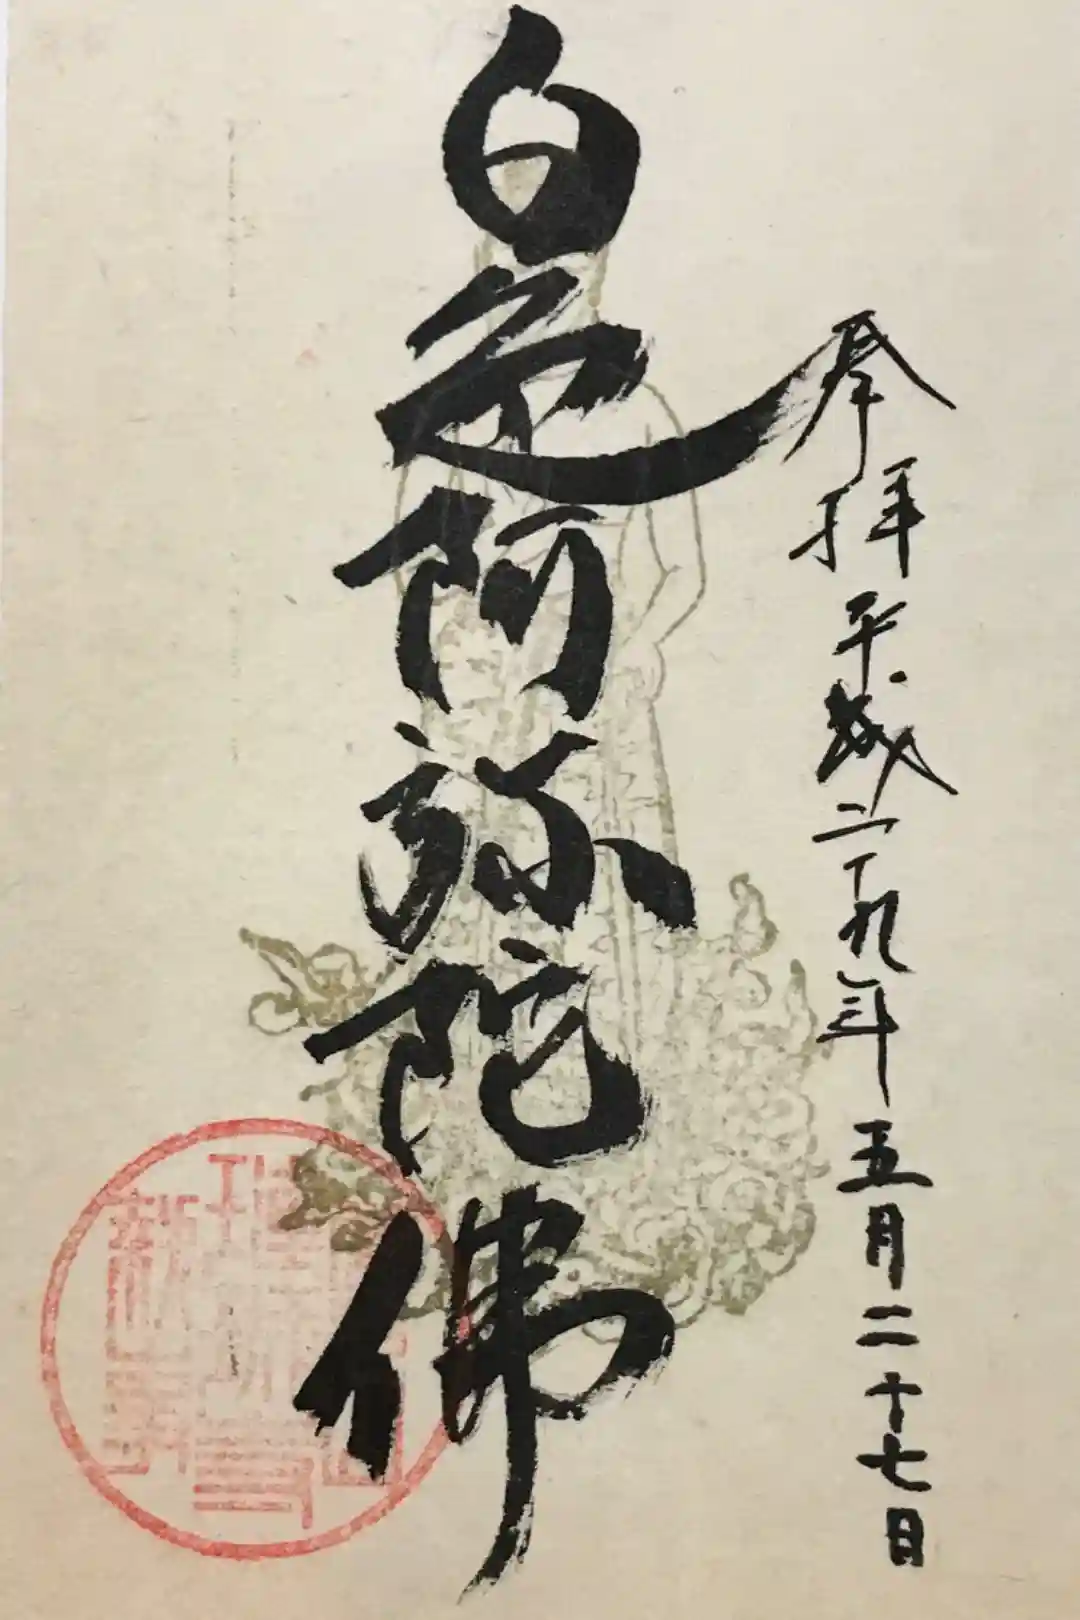 奉拝 平成二十九年 五月二十七日
阿弥陀佛